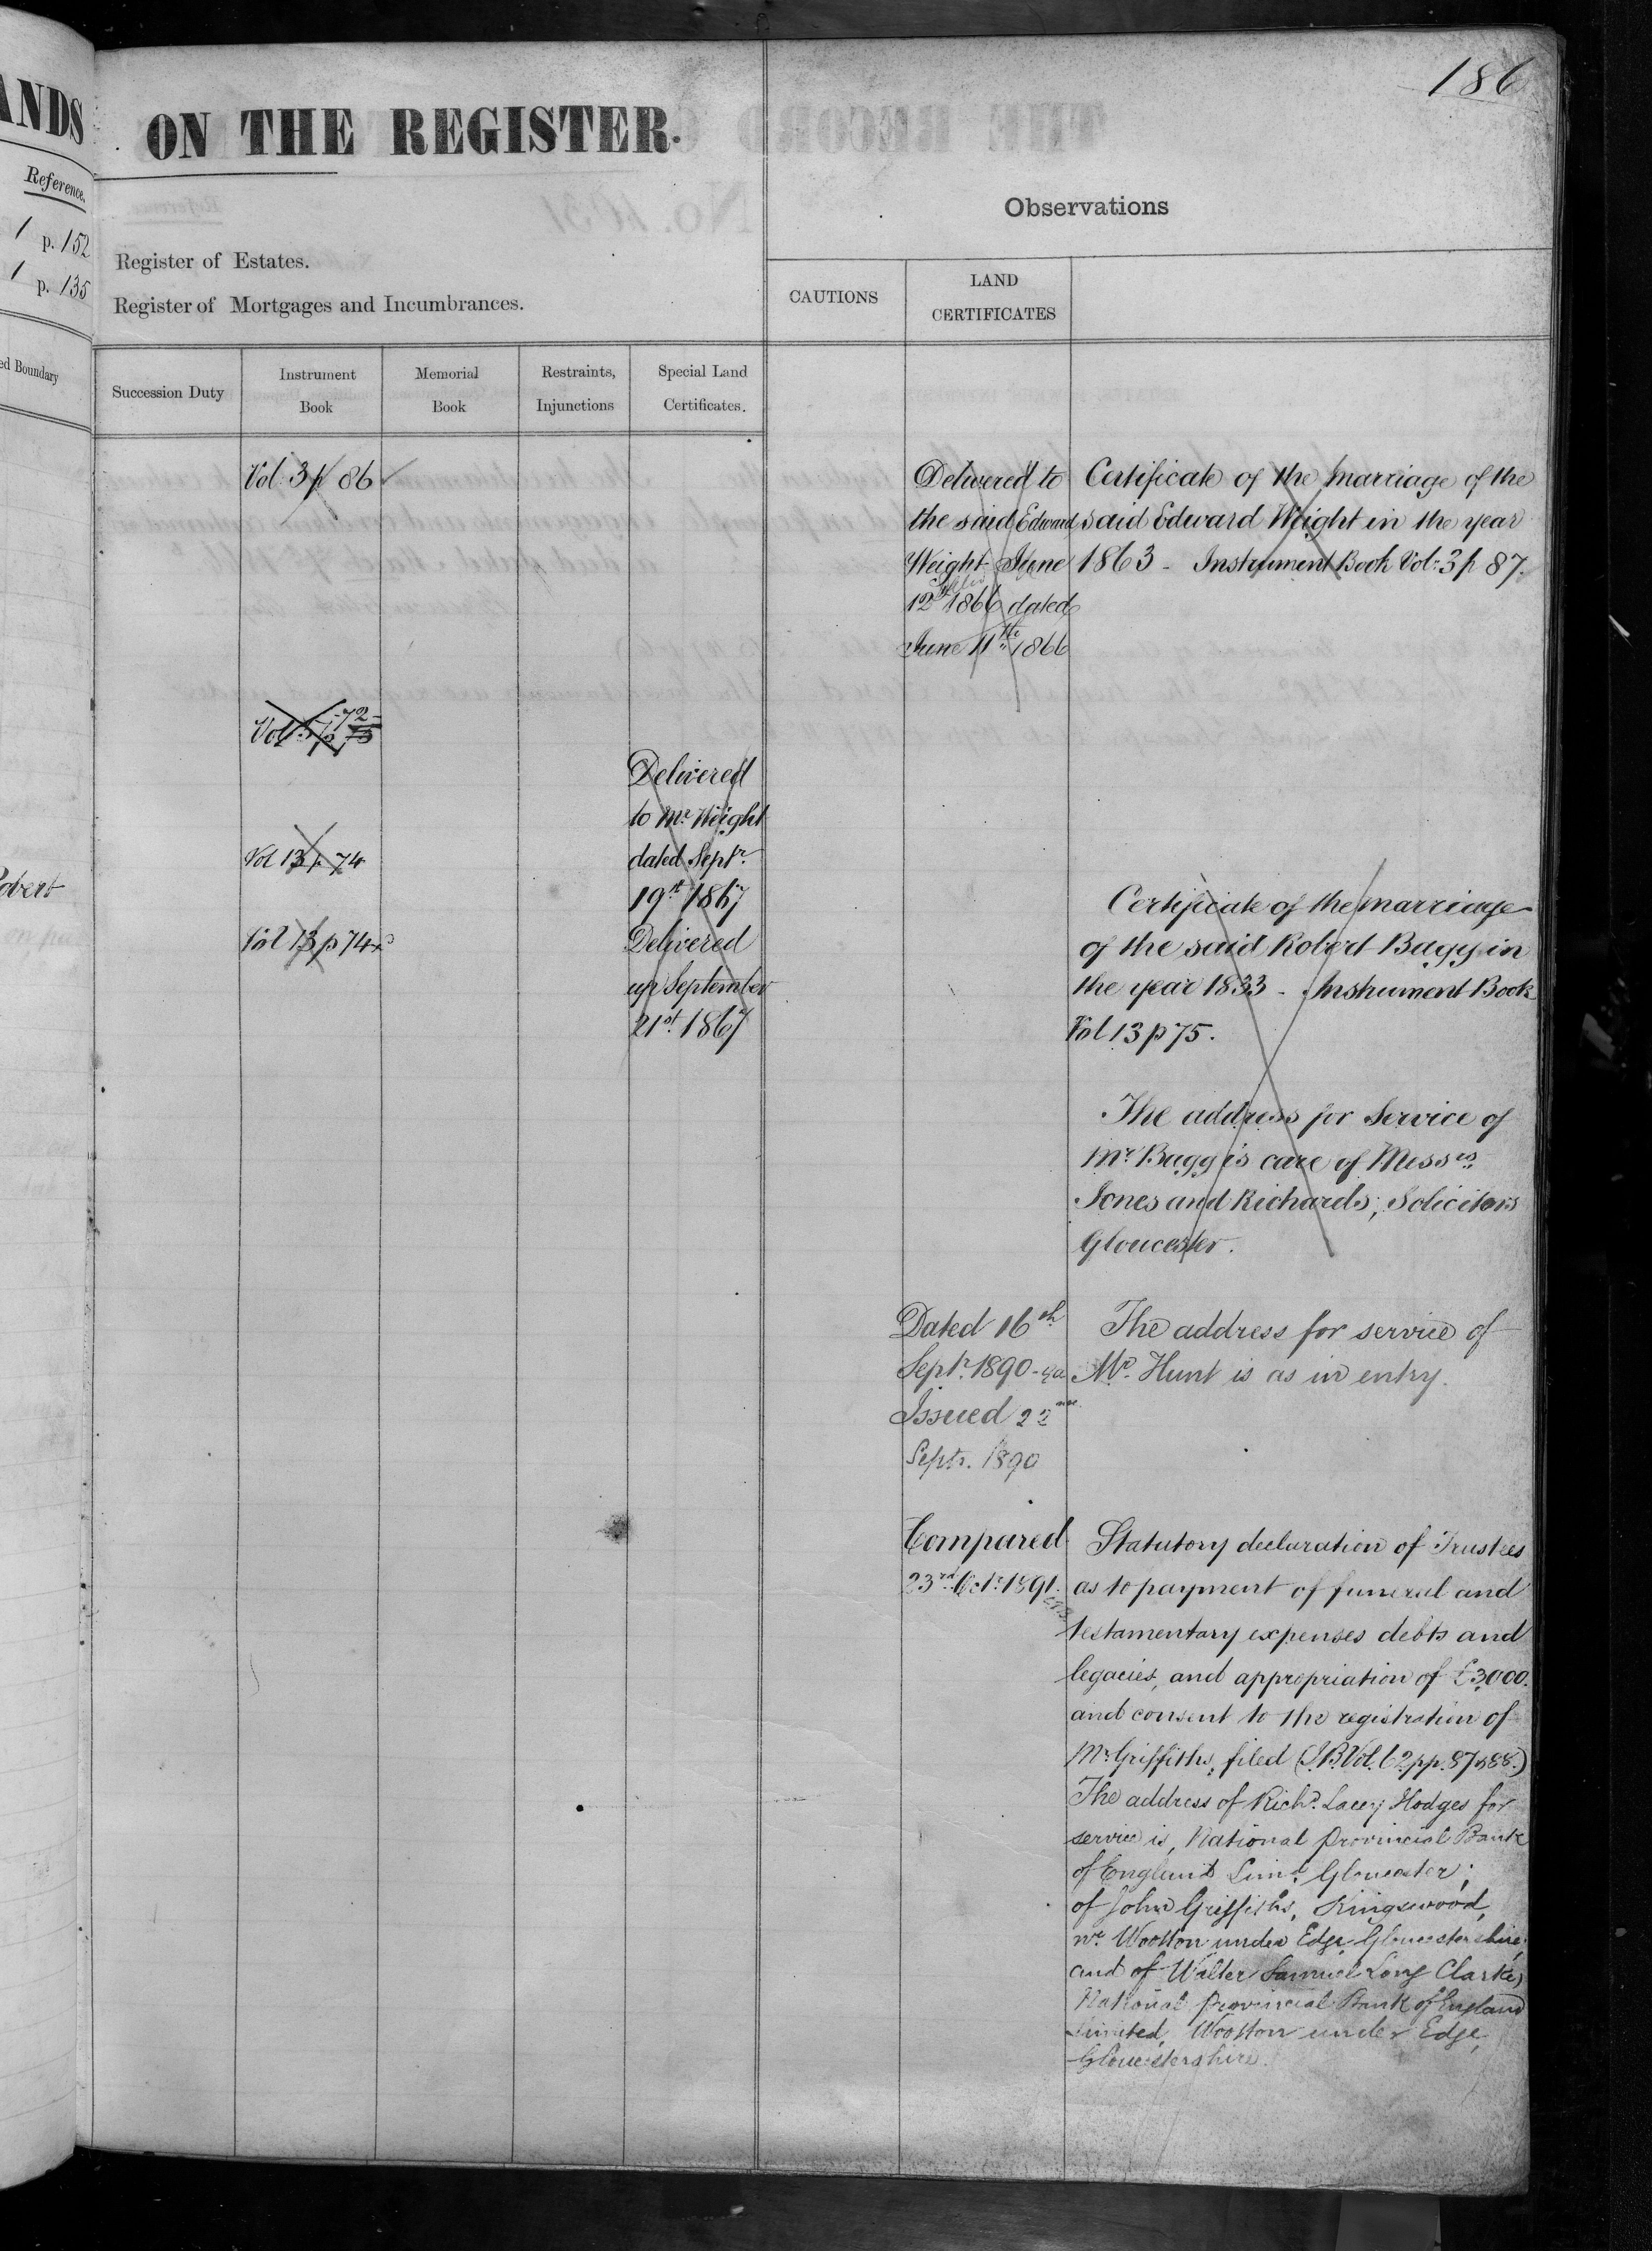 186
ANDS
ON THE REGISTER.
Reference.
1 p. 152
1 p. 135
ed Boundary
Observations
Register of Estates.
Register of Mortgages and Incumbrances.
CAUTIONS
LAND
CERTIFICATES
Succession Duty
Instrument
Book
Memorial
Book
Restraints,
Injunctions
Special Land
Certificates.
Vol. 3 p 86
Delivered to
the said Edward
Weight June
12th 1866 dated
June 11th 1866
Certificate of the marriage of the
said Edward Weight in the year
1863 - Instrument Book Vol: 3 p 87.
Vol. p 72
Delivered
to Mr. Weight
dated Septr.
19th 1867
Vol 13 p 74
obert
Vol 13 p 74
Delivered
up September
21st. 1867
Certificate of the marriage
of the said Robert Bagg in
the year 1833 - Instrument Book
Vol 13 p 75.
The address for Service of
Mr. Bagg is care of Messrs
Jones and Richards, Solicitors
Gloucester.
Dated 16th
Septr. 1890
Issued 22nd
Septr. 1890
The address for service of
Mr. Hunt is as in entry.
Compared
23rd. Octr. 1891.
Statutory declaration of Trustees
as to payment of funeral and
testamentary expenses debts and
legacies, and appropriation of £3,000.
and consent to the registration of
Mr. Griffiths, filed (I.B. Vol. 62 pp. 87 & 88.)
The address of Richd. Lacey Hodges for
service is, National Provincial Bank
of England Limd. Gloucester;
of John Griffiths, Kingswood,
nr. Wootton under Edge Gloucestershire,
and of Walter Samuel Long Clarke,
National Provincial Bank of England
Limited, Wootton under Edge,
Gloucestershire.